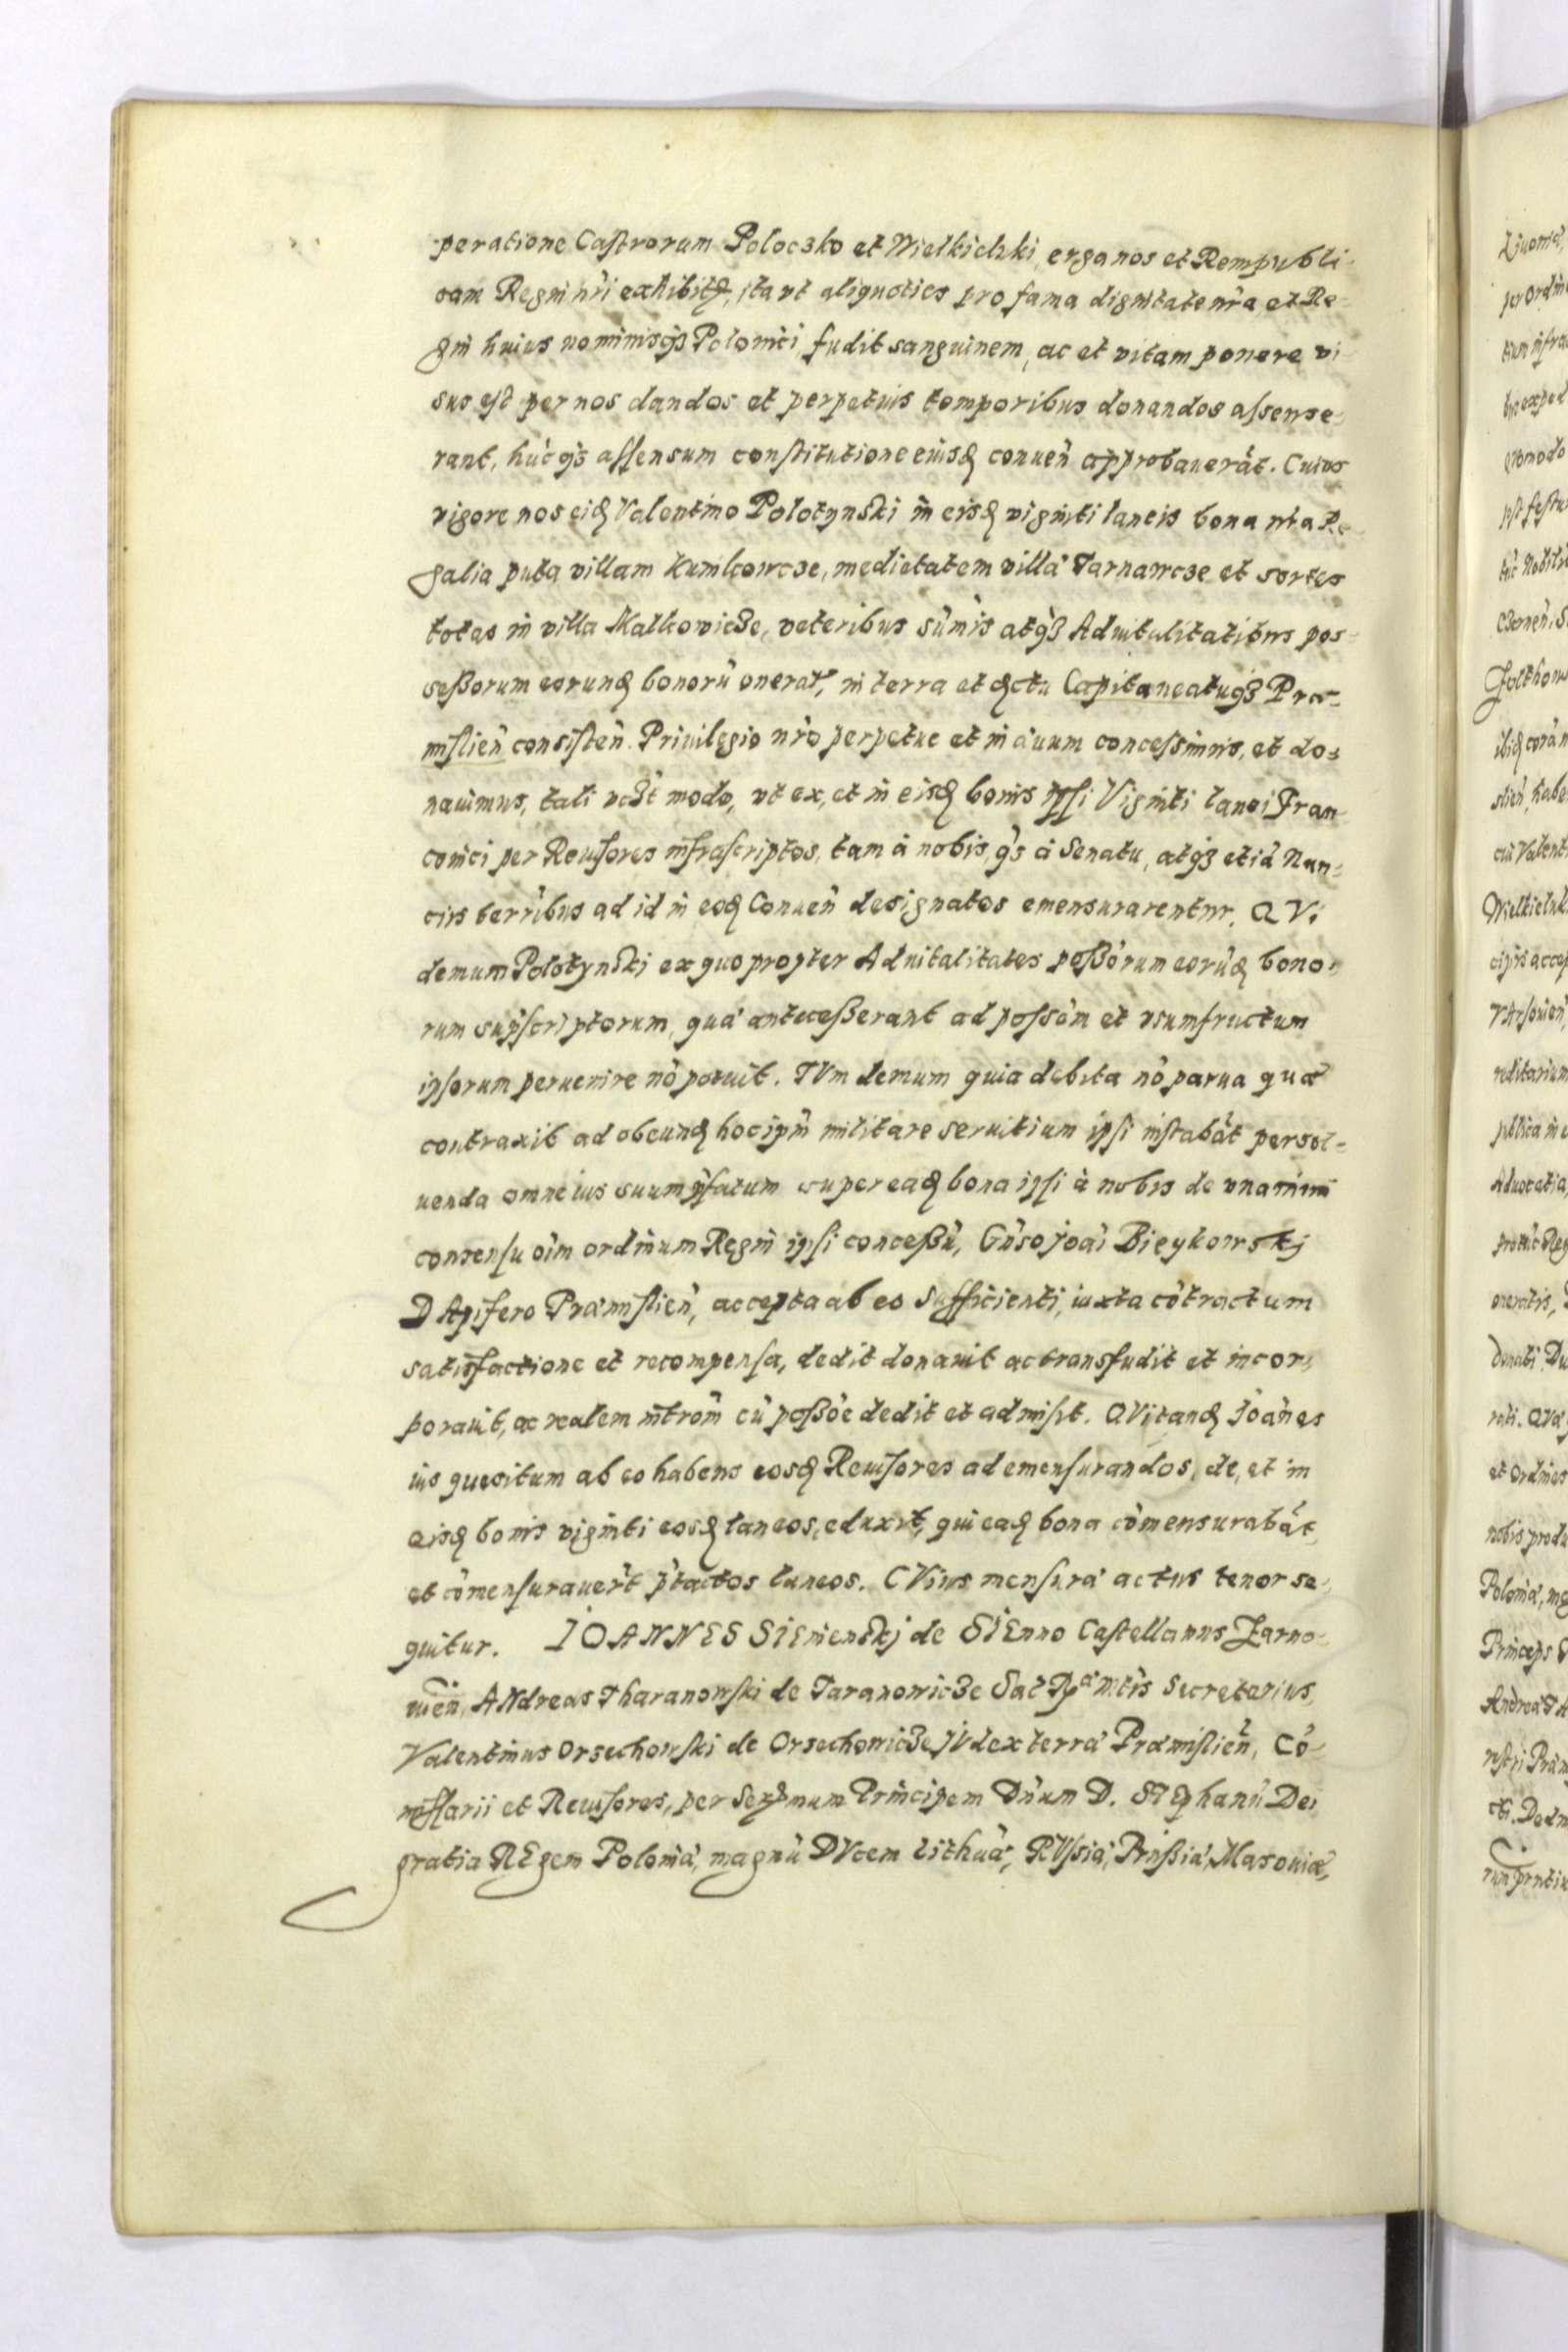 peratione Castrorum Poloczko et Wielkieluki erga nos et Rempubli-
cam Regni nr̃i exhibitę, ita vt aliquoties pro fama dignitate nr̃a et Re-
gni huius nominisq3 Polonici fudit sanguinem, ac et vitam ponere vi-
sus est per nos dandos et perpetuis temporibus donandos assense-
rant, hũcq3 assensum constitutione eiusd conueñ approbauerãt. Cuius
vigore nos eid Valentino Polotynski in eisd viginti laneis bona nr̃a Re-
galia puta villam Kunkowcze, medietatem villæ Tarnawcze et sortes
totas in villa Malkowicze, veteribus sum̃is atq3 Aduitalitatibus pos-
seßorum eorund bonorũ onerat, in terra et dctu Capitaneatuq3 Præ-
mislieñ consisteñ. Priuilegio nr̃o perpetue et in æuum concessimus, et do-
nauimus, tali vc3t modo, vt ex, et in eisd bonis ipsi Viginti lanei Fran-
conici per Reuisores infrascriptos, tam à nobis, q̃3 à Senatu, atq3 etiã Nun-
ciis terr̃ibus ad id in eod Conueñ designatos emensurarentur. QVi
demum Polotynski ex quo propter Aduitalitates poßorum eorũd bono-
rum sup̃scriptorum, quæ anteceßerant ad posso̊m et vsumfructum
ipsorum peruenire nõ potuit. TVm demum quia debita nõ parua quæ
contraxit ad obeund hoc ipm̃ militare seruitium ipsi instabãt persol-
uenda omne ius suum p̃fatum super ead bona ipsi à nobis de vnanimi
consensu oĩm ordinum Regni ipsi conceßũ, Gñso Joañi Bieykowskj
DApifero Præmislieñ, accepta ab eo sufficienti, iuxta cõtractum
satisfactione et recompensa, dedit donauit ac transfudit et incor-
porauit, ac realem int̃rom̃ cũ poßõe dedit et admisit. QVi tand Joañes
ius quesitum ab eo habens eosd Reuisores ad emensurandos, de, et in
eisd bonis viginti eosd laneos, eduxit, qui ead bona cõmensurabãt,
et cõmensurauer̃t p̃tactos laneos. CVius mensuræ actus tenor se-
quitur. IOANNES SIEnienskj de SIEnno Castellanus Zarno-
uieñ, ANdreas Tharanowski de Taranowicze Sac Rę Mtis Secretarius,
Valentinus Orsechowski de Orsechowicze JVdex terræ Præmislieñ, Cõ-
missarii et Reuisores, per Ser̃mum Principem Dñum D. STEphanũ Dei
gratia REgem Poloniæ, magnũ DVcem Lithuæ, RVssiæ, Prußiæ, Masouiæ,